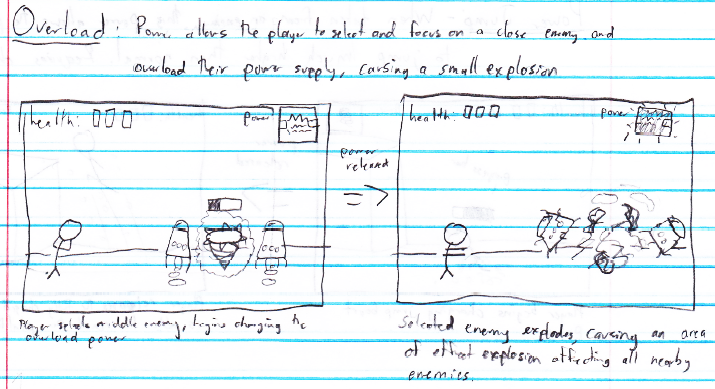 Overload: Power allows the player to select and focus on a close enemy and
overload their power supply, causing a small explosion
health:
power
power
released
health:
power
Player selects middle enemy, begins charging the
overload power
Selected enemy explodes, causing an area
of effect explosion affecting all nearby
enemies.